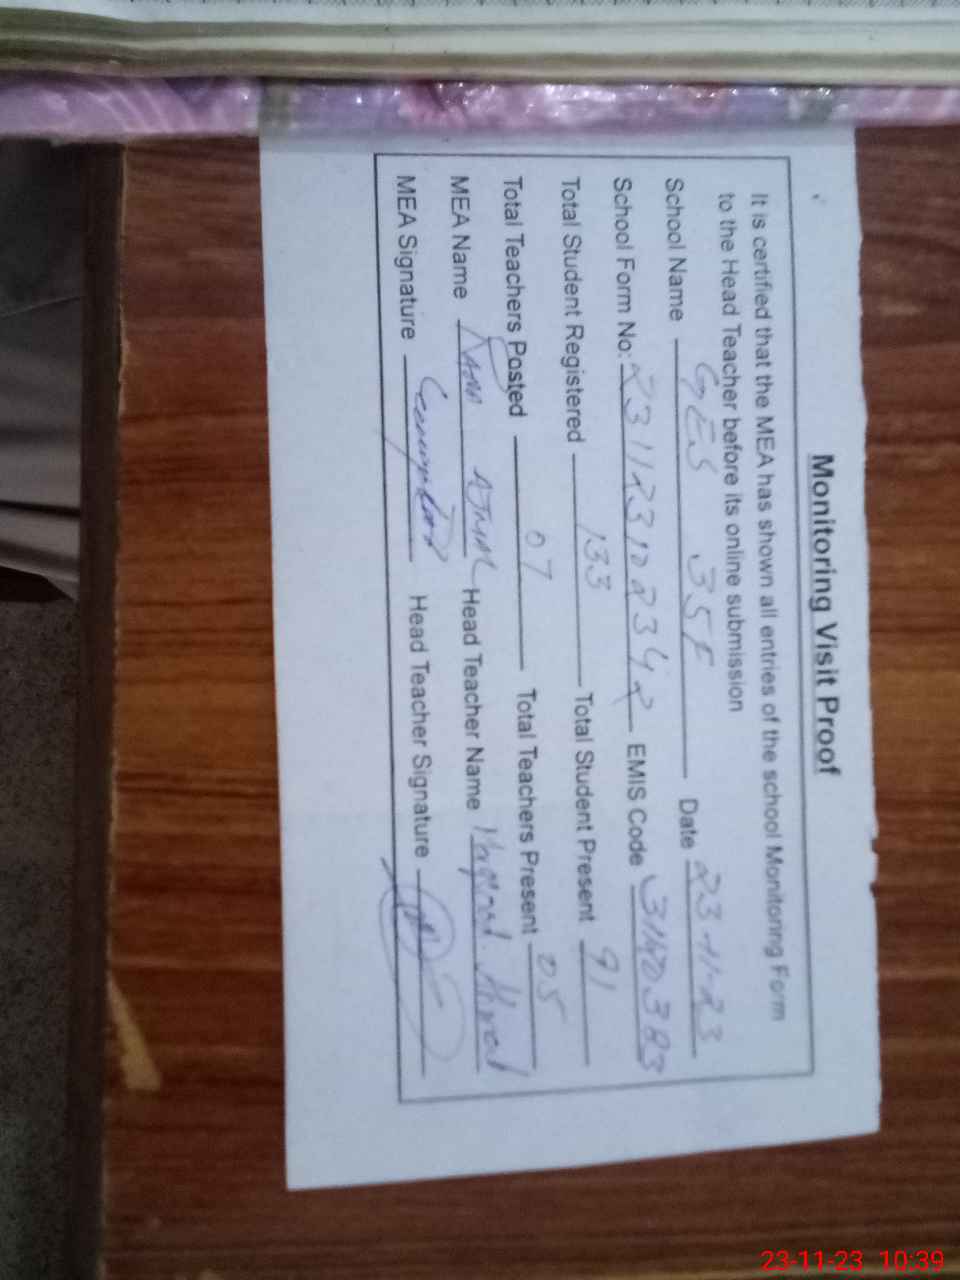 Monitoring Visit Proof
It is certified that the MEA has shown all entries of the school Monitoring Form
to the Head Teacher before its online submission
School Name GES 35F Date 23-11-23
School Form No: EMIS Code
Total Student Registered 133 Total Student Present 91
Total Teachers Posted 07 Total Teachers Present 05
MEA Name Head Teacher Name
MEA Signature Head Teacher Signature
23-11-23 10:39